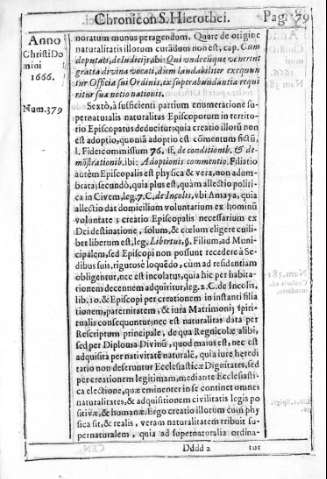 Chronicon S. Hierothei. Pag. 79
Anno
Christi Do
mini
1666.
Num. 379
noratum munus peragendum. Quare de origine
naturalitatis illorum curãdum non est, cap. Cum
deputati, de Iudicijs ibi: Qui undecũque venerint
gratia divina vocati, dum laudabiliter exequun
tur Officia sui Ordinis, ex superabundantia requi
ritur sua nationis.
Sextò, à sufficienti partium enumeratione su
pernaturalis naturalitas Episcoporum in territo
rio Episcopatus deducitur: quia creatio illorũ non
est adoptio, quoniã adoptio est cõmentum fictũ
l. Fideicommissum 76. ff. de conditionib. & de-
mõstrationib. ibi: Adoptionis commentio. Filiatio
autèm Episcopalis est physica & vera, non adum-
brata; secundò, quia plus est, quàm allectio politi-
ca in Civem, leg. 7. C. de Incolis, ubi Amaya, quia
allectio dat domicilium voluntarium ex hominũ
voluntate; creatio Episcopalis necessarium ex
Dei destinatione, solum, & cælum eligere cuili-
bet liberum est, leg. Libertus, §. Filium, ad Muni-
cipalem, sed Episcopi non possunt recedere à Se-
dibus suis, rigurosè loquẽdo, cùm ad residentiam
obligentur, nec est incolatus, quia hic per habita-
tionem decennem adquiritur, leg. 2. C. de Incolis,
lib. 10. & Episcopi per creationem in instanti filia
tionem, paternitatem, & iura Matrimonij spiri-
tualis consequuntur, nec est naturalitas data per
Rescriptum principale, de qua Regnicolæ alibi,
sed per Diploma Divinũ, quod maius est, nec est
adquisita per nativitatẽ naturalẽ, quia iure heredi
tatio non deferuntur Ecclesiasticæ Dignitates, sed
per creationem legitimam, mediante Ecclesiasti-
ca electione, quæ eminenter in se continet omnes
naturalitates, & adquisitionem civilitatis legis po
sitivæ, & humanæ. Ergo creatio illorum cùm phy
sica sit, & realis, veram naturalitatem tribuit su-
pernaturalem, quia ad supernaturalia ordina-
Dddd 2 tur